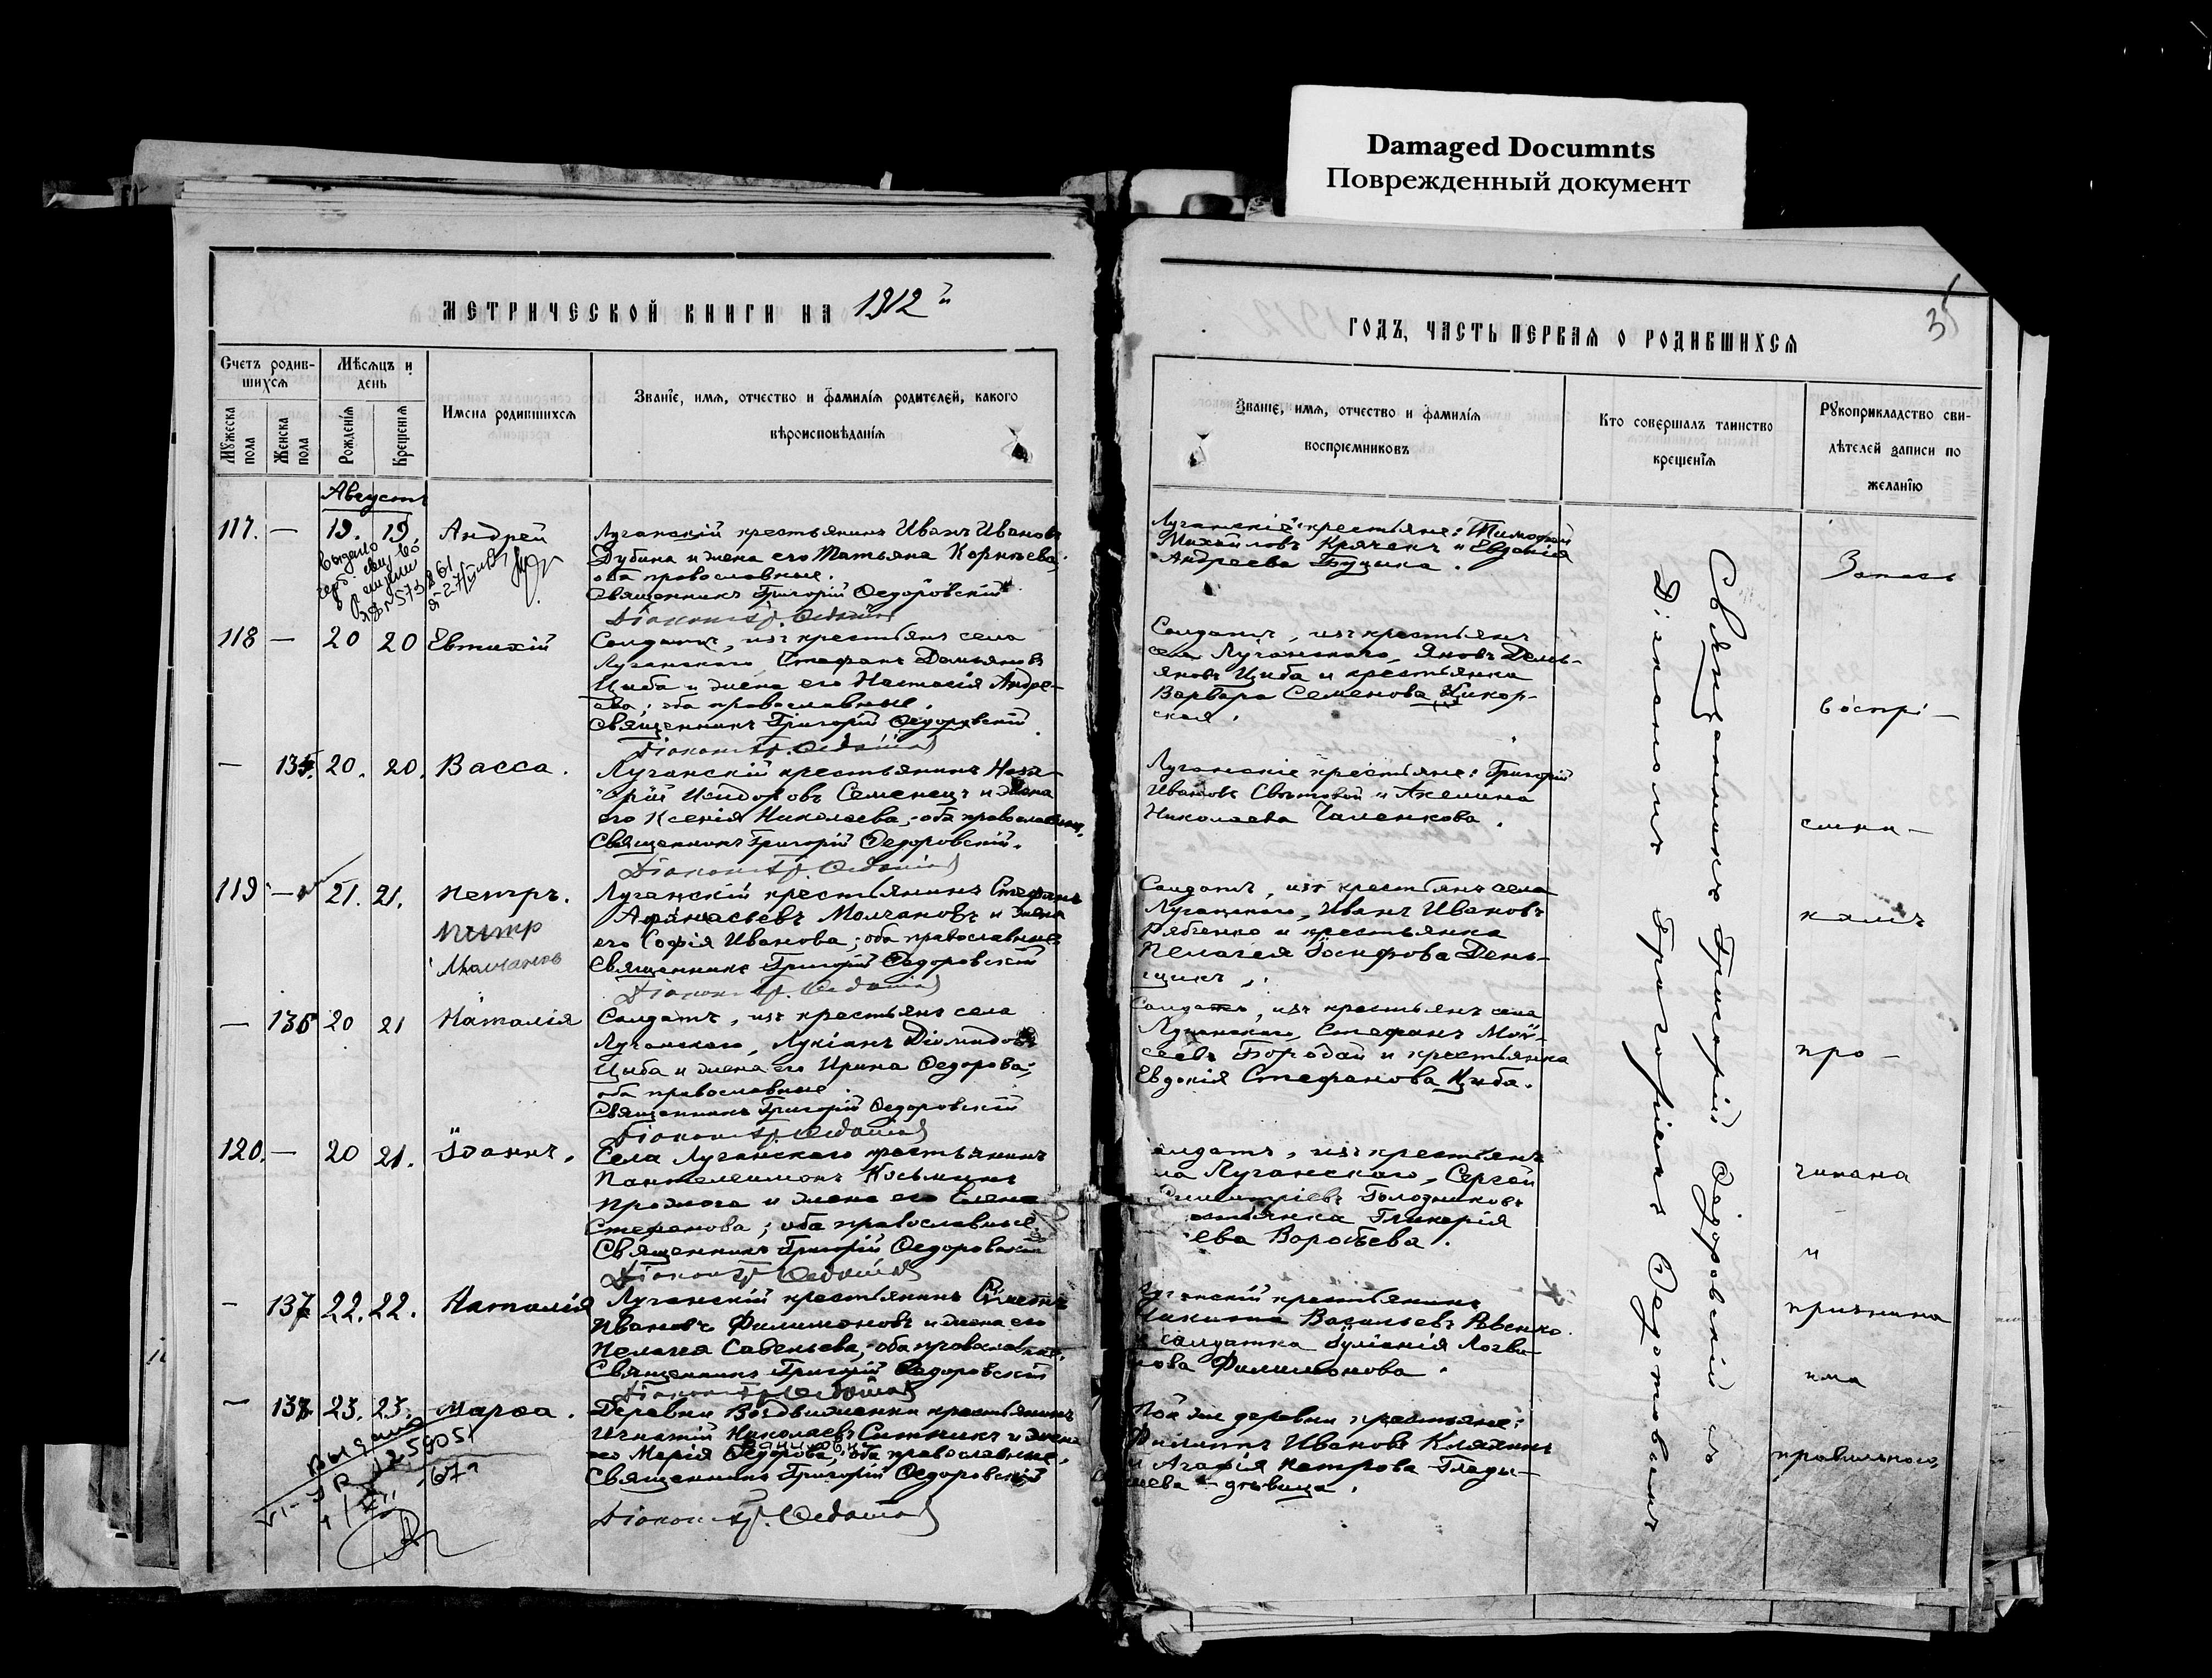 Damaged Documnts
Поврежденный документ
МЕТРИЧЕСКОЙ КНИГИ НА 1912 й
Счетъ родив-
шихся
Мѣсяцъ и
день
Имена родившихся
Званіе, имя, отчество и фамилія родителей, какого
вѣроисповѣданія
Мужеска
пола
Женска
пола
Рожденія
Крещенія
Августъ
117. — 19. 19. Андрей
Луганскій крестьянинъ Иванъ Ивановъ
Дубина и жена его Татьяна Корнѣева;
оба православные.
Священникъ Григорій Ѳедоровскій
Діаконъ Гр.
Выдано
118 — 20 20 Евтихій
Солдатъ, изъ крестьянъ села
Луганскаго, Стефанъ Демьяновъ
Цыба и жена его Настасія Андре-
ева; оба православные.
Священникъ Григорій Ѳедоровскій
Діаконъ Гр.
— 135. 20. 20. Васса.
Луганскій крестьянинъ Наза-
рій Исидоровъ Семенецъ и жена
его Ксенія Николаева; оба православные.
Священникъ Григорій Ѳедоровскій.
Діаконъ Гр.
119 — 21. 21. Петръ.
Петр
Молчанов
Луганскій крестьянинъ Стефанъ
Аѳанасьевъ Молчановъ и жена
его Софія Иванова; оба православные
Священникъ Григорій Ѳедоровскій
Діаконъ Гр.
— 136 20 21 Наталія
Солдатъ, изъ крестьянъ села
Луганскаго, Лукіанъ Діомидовъ
Цыба и жена его Ирина Ѳедорова;
оба православные.
Священникъ Григорій Ѳедоровскій
Діаконъ Гр.
120. — 20 21. Іоаннъ.
Села Луганскаго крестьянинъ
Пантелеимонъ Косьминъ
и жена его Елена
Стефанова; оба православные.
Священникъ Григорій Ѳедоровскій
Діаконъ Гр.
— 137 22. 22. Наталія
Луганскій крестьянинъ Симеонъ
Ивановъ Филимоновъ и жена его
Пелагея Савельева; оба православные.
Священникъ Григорій Ѳедоровскій
Діаконъ Гр.
— 138 23. 23. Марѳа.
Деревни Воздвиженки крестьянинъ
Игнатій Николаевъ Ситникъ и жена
его Марія Ѳедорова; оба православные.
Священникъ Григорій Ѳедоровскій
Діаконъ Гр.
Выдано
35
ГОДЪ, ЧАСТЬ ПЕРВАЯ О РОДИВШИХСЯ
Званіе, имя, отчество и фамилія
воспріемниковъ
Кто совершалъ таинство
крещенія
Рукоприкладство сви-
дѣтелей записи по
желанію
Луганскіе крестьяне: Тимоѳей
Михайловъ и Евдокія
Андреева
Солдатъ, изъ крестьянъ
села Луганскаго, Яковъ Демь-
яновъ Цыба и крестьянка
Варвара Семенова Цикор-
ская.
Луганскіе крестьяне: Григорій
Ивановъ и Акелина
Николаева Чаленкова.
Солдатъ, изъ крестьянъ села
Луганскаго, Иванъ Ивановъ
Рябченко и крестьянка
Пелагея Іосифова День-
щикъ.
Солдатъ, изъ крестьянъ села
Луганскаго, Стефанъ Мой-
сеевъ Бородай и крестьянка
Евдокія Стефанова Цыба.
солдатъ, изъ крестьянъ
Луганскаго, Сергѣй
Димитріевъ Голодниковъ
Гликерія
Воробьева.
Луганскій крестьянинъ
Никита Васильевъ
и солдатка Іуліанія Логви-
нова Филимонова.
Той же деревни крестьяне:
Филиппъ Ивановъ
и Агафія Петрова Глады-
шева - дѣвица.
Священникъ Григорій Ѳедоровскій съ
Діакономъ Григоріемъ
Запись
воспрі-
емни-
камъ
про-
читана
и
признана
има
правильною.